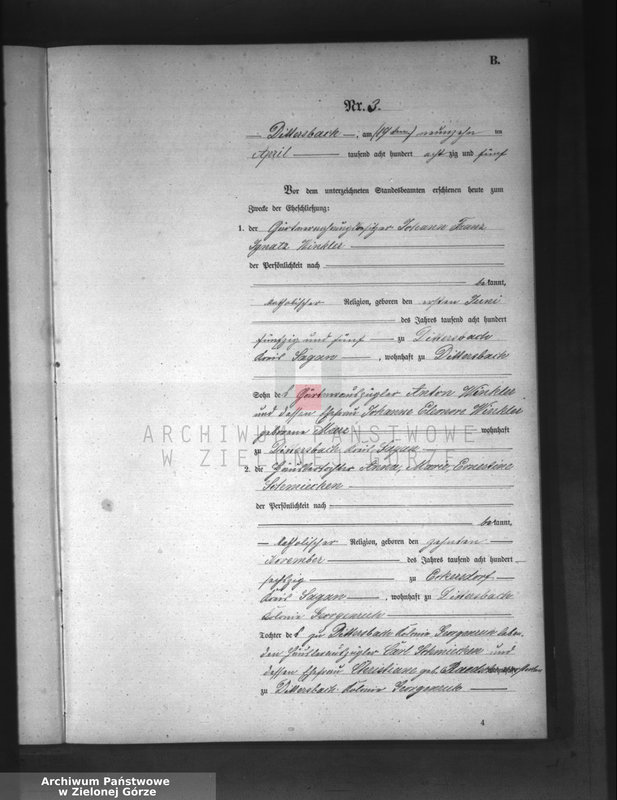 B.
Nr. 3.
Dittersbach, am (19 ten) neunzehn ten
April tausend acht hundert acht zig und fünf
Vor dem unterzeichneten Standesbeamten erschienen heute zum
Zwecke der Eheschließung:
1. der Gärtnernahrungsbesitzer Johann Franz
Ignatz Winkler
der Persönlichkeit nach
bekannt,
katholischer Religion, geboren den ersten Juni
des Jahres tausend acht hundert
fünfzig und fünf zu Dittersbach
Kreis Sagan, wohnhaft zu Dittersbach
Sohn des Gärtnerauszügler Anton Winkler
und dessen Ehefrau Johanne Eleonore Winkler
geborene wohnhaft
zu Dittersbach Kreis Sagan
2. die Häuslertochter Anna, Marie, Ernestine
Schmiechen
der Persönlichkeit nach
bekannt,
katholischer Religion, geboren den zehnten
November des Jahres tausend acht hundert
sechszig zu Eckersdorf
Kreis Sagan, wohnhaft zu Dittersbach
Kolonie Georgenruh
Tochter des zu Dittersbach Kolonie Georgenruh leben
den Häuslerauszügler Carl Schmiechen und
dessen Ehefrau Christiane geb.
zu Dittersbach Kolonie Georgenruh
4
ARCHIWUM PAŃSTWOWE
W ZIELONEJ GÓRZE
Archiwum Państwowe
w Zielonej Górze